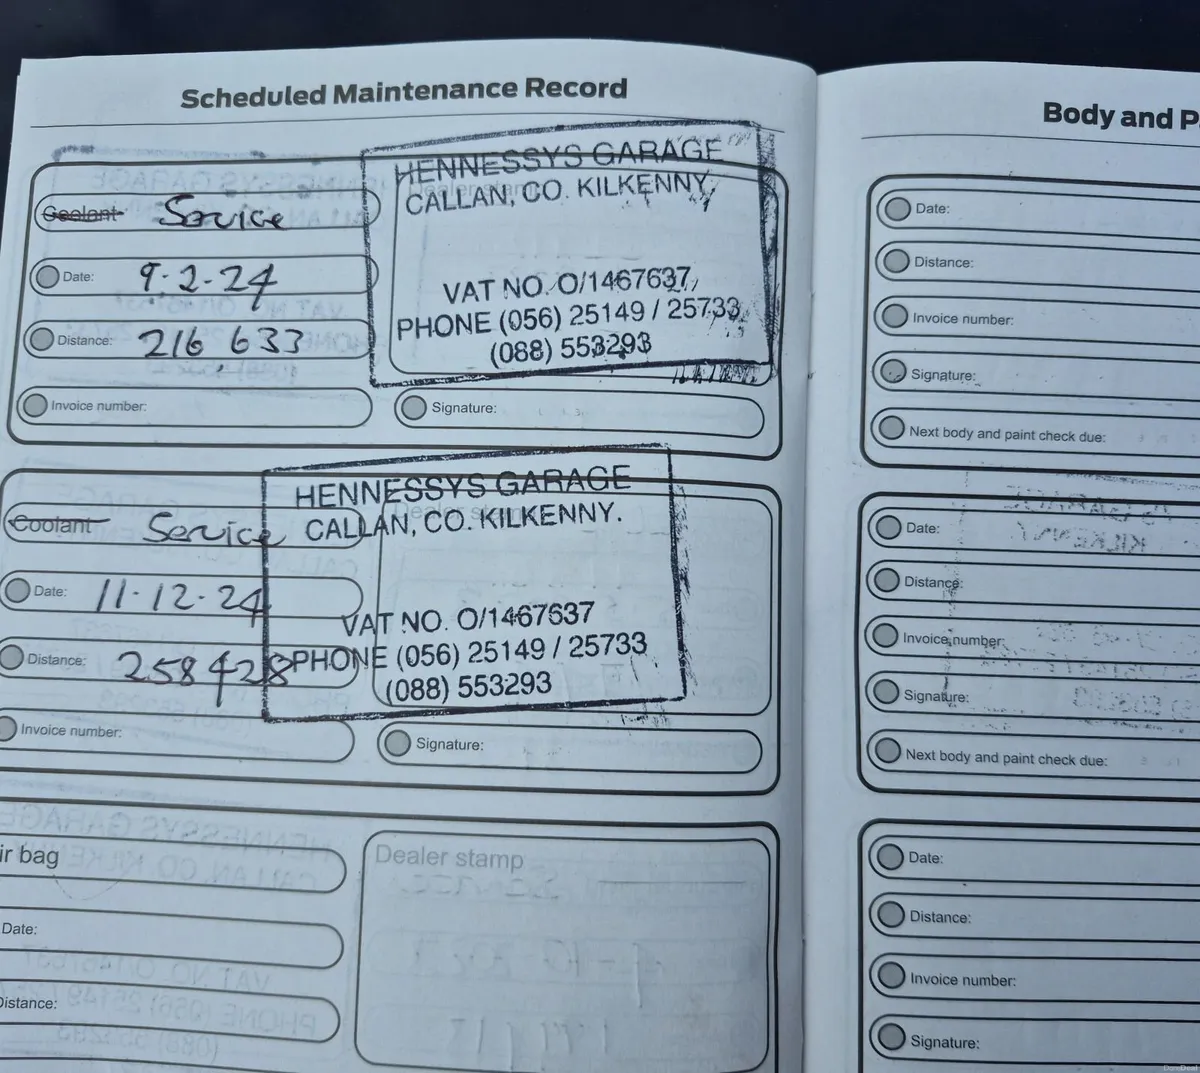 Scheduled Maintenance Record
Coolant Service
Date: 9.2.24
Distance: 216 633
Invoice number:
Dealer stamp
HENNESSYS GARAGE
CALLAN, CO. KILKENNY.
VAT NO. O/1467637
PHONE (056) 25149 / 25733
(088) 553293
Signature:
Coolant Service
Date: 11.12.24
Distance: 258428
Invoice number:
Dealer stamp
HENNESSYS GARAGE
CALLAN, CO. KILKENNY.
VAT NO. O/1467637
PHONE (056) 25149 / 25733
(088) 553293
Signature:
ir bag
Date:
Distance:
Dealer stamp
Body and P
Date:
Distance:
Invoice number:
Signature:
Next body and paint check due:
Date:
Distance:
Invoice number:
Signature:
Next body and paint check due:
Date:
Distance:
Invoice number:
Signature:
DoneDeal